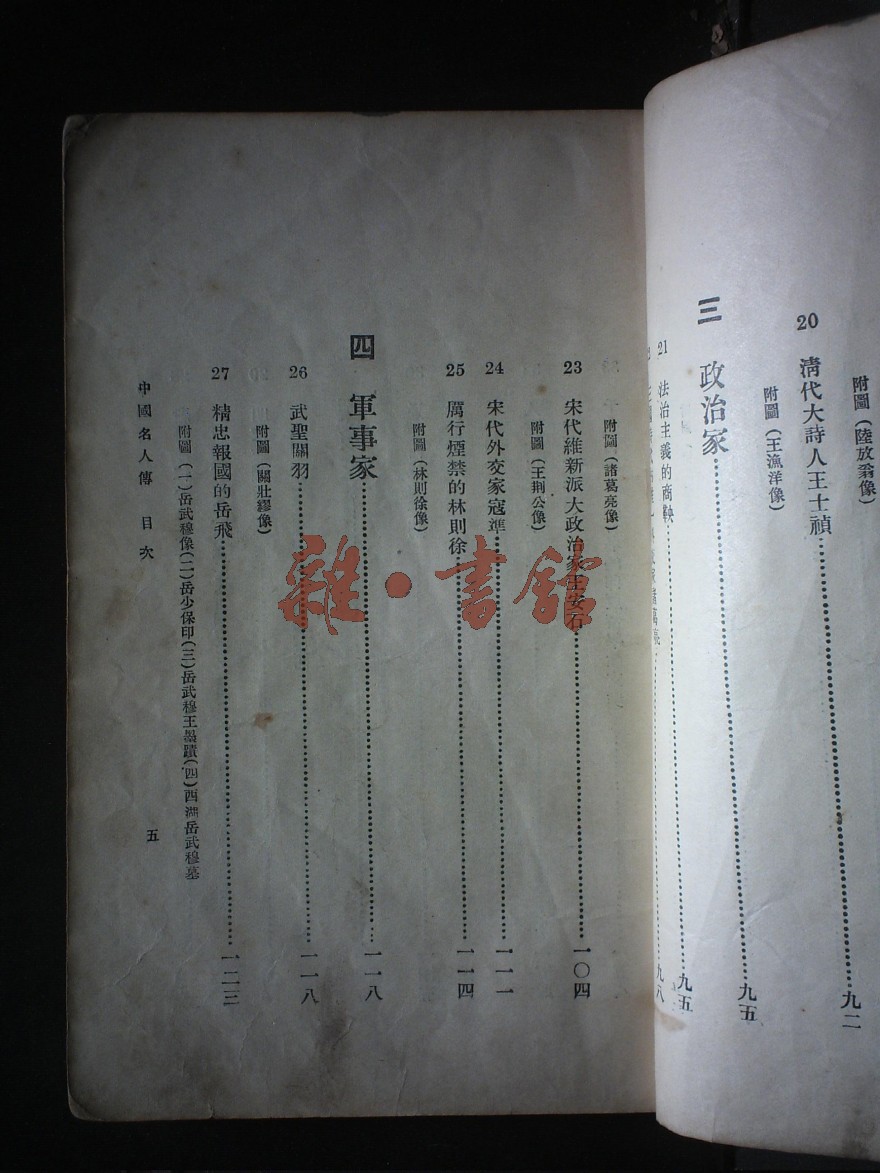 附圖(陸放翁像)
20 淸代大詩人王士禎⋯⋯九二
附圖(王漁洋像)
三 政治家⋯⋯九五
21 法治主義的商鞅⋯⋯九五
諸葛亮⋯⋯九八
附圖(諸葛亮像)
23 宋代維新派大政治家王安石⋯⋯一〇四
附圖(王荆公像)
24 宋代外交家寇準⋯⋯一一一
25 厲行煙禁的林則徐⋯⋯一一四
附圖(林則徐像)
四 軍事家⋯⋯一一八
26 武聖關羽⋯⋯一一八
附圖(關壯繆像)
27 精忠報國的岳飛⋯⋯一二三
附圖(一)岳武穆像(二)岳少保印(三)岳武穆王墨蹟(四)西湖岳武穆墓
中國名人傳 目次
五
雜·書館